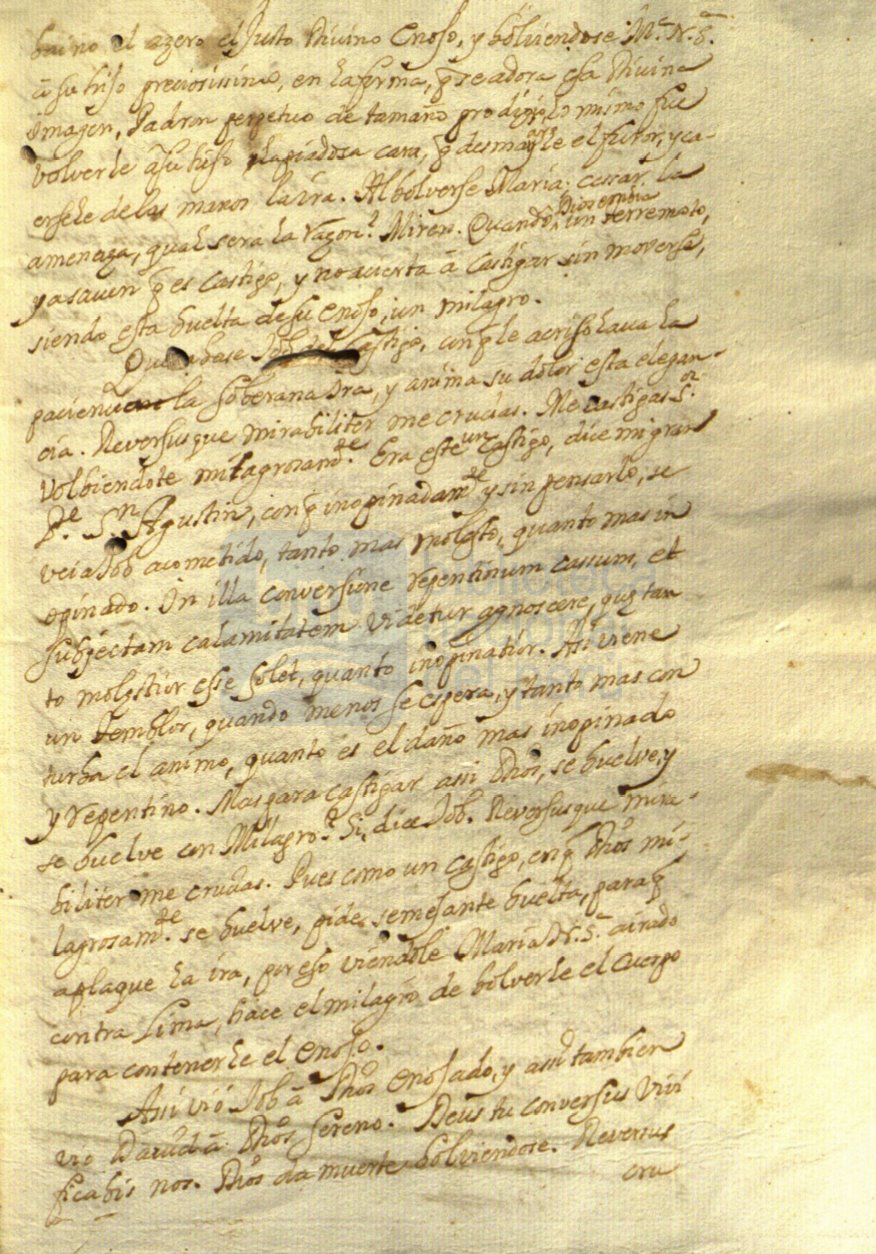 el azero el Justo Divino Enojo, y bolviendose M.ª N. S.ª
â su hijo preciosissimo, en la forma, q̃ se adora esa Divina
Imagen, Padron perpetuo de tamaño prodigio, lo mismo fue
volverle â su hijo la piadosa cara, q̃ desmayarle el furor, y ca-
ersele de las manos la ira. Al bolverse Maria, cessar la
amenaza, qual sera la razon? Miren. Quando Dios embia un terremoto,
ya saven q̃ es castigo, y no acierta â castigar sin moverse,
siendo esta buelta de su Enojo, un milagro.
Quexabase Job del Castigo, con q̃ le acrisolava la
paciencia la Soberana Ira, y anima su dolor esta elegan-
cia. Reversusque mirabiliter me crucias. Me castigas S.or
volbiendote milagrosam.te Era este un castigo, dice mi gran
P.e S.n Agustin, con q̃ inopinadam.te y sin pensarlo, se
veia Job acometido, tanto mas molesto, quanto mas in
opinado. In illa conversione repentinum cassum, et
subjectam calamitatem videtur agnoscere, quæ tan
to molestior esse solet, quanto inopinatior. Assi viene
un temblor, quando menos se espera, y tanto mas con
turba el animo, quanto es el daño mas inopinado
y repentino. Mas para castigar assi Dios, se buelve, y
se buelve con Milagro? Si, dice Job. Reversusque mira-
biliter me crucias. Pues como un castigo, en q̃ Dios mi-
lagrosam.te se buelve, pide semejante buelta, para q̃
aplaque la ira, por eso viendole Maria N. S.ª airado
contra Lima, hace el milagro de bolverle el cuerpo
para contenerle el Enojo.
Assi vió Job â Dios Enojado, y assi tambien
vio David â Dios sereno. Deus tu conversus vivi
ficabis nos. Dios da muerte bolviendose. Reversus
cru
Biblioteca
Nacional
del Perú